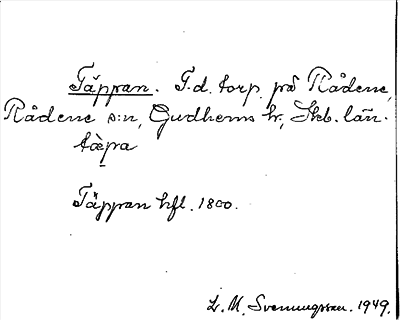 Täppan. F.d. torp på Rådene,
Rådene s:n, Gudhems hr, Skb. län.
tæ̀pa
Täppan hfl. 1800.
L. M. Svenungsson. 1949.